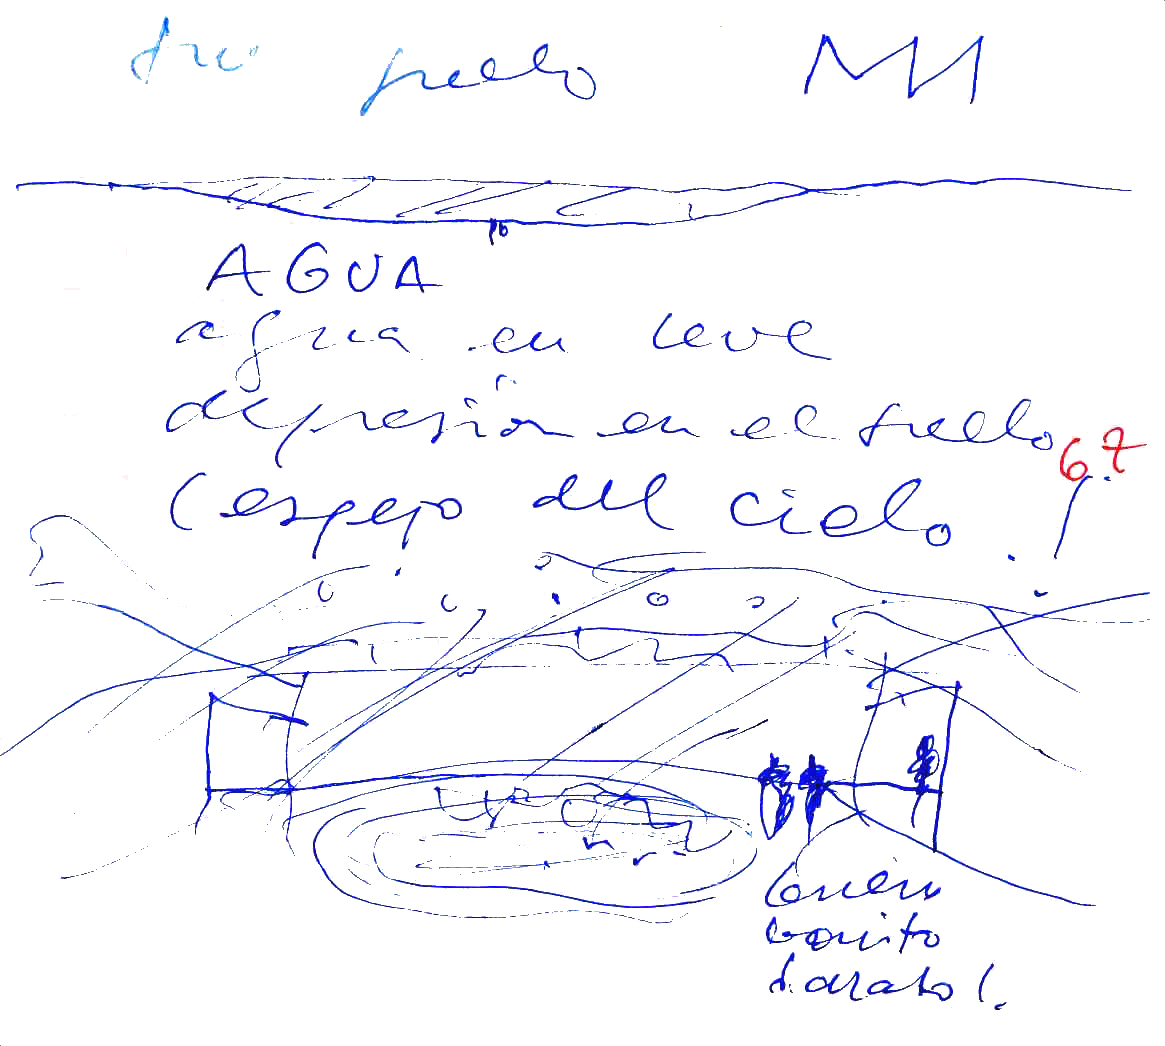 suelo MM
AGUA
agua en leve
depresión en el suelo
6.7
(espejo del cielo.!
bonito
barato!.